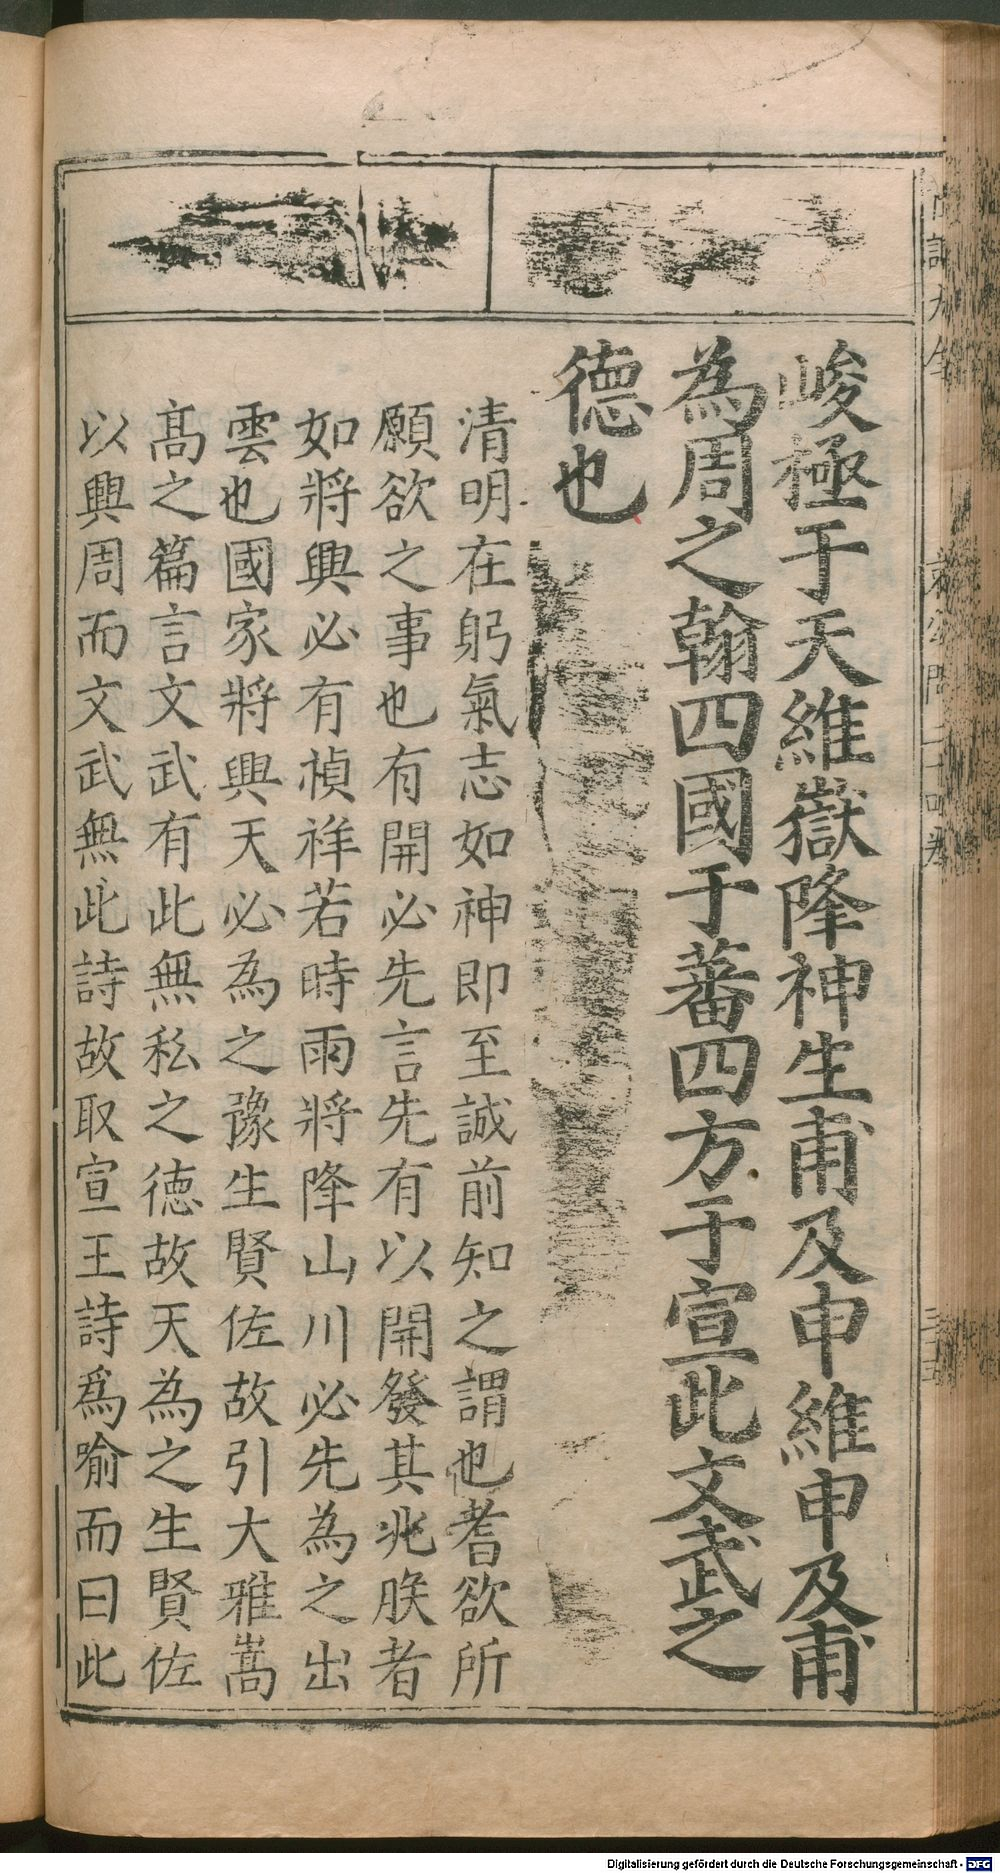 峻極于天維嶽降神生甫及申維申及甫
為周之翰四國于蕃四方于宣此文武之
德也
清明在躬氣志如神即至誠前知之謂也耆欲所
願欲之事也有開必先言先有以開發其兆朕者
如將興必有禎祥若時雨將降山川必先為之出
雲也國家將興天必為之豫生賢佐故引大雅嵩
髙之篇言文武有此無私之徳故天為之生賢佐
以興周而文武無此詩故取宣王詩爲喻而曰此
Digitalisierung gefördert durch die Deutsche Forschungsgemeinschaft - DFG